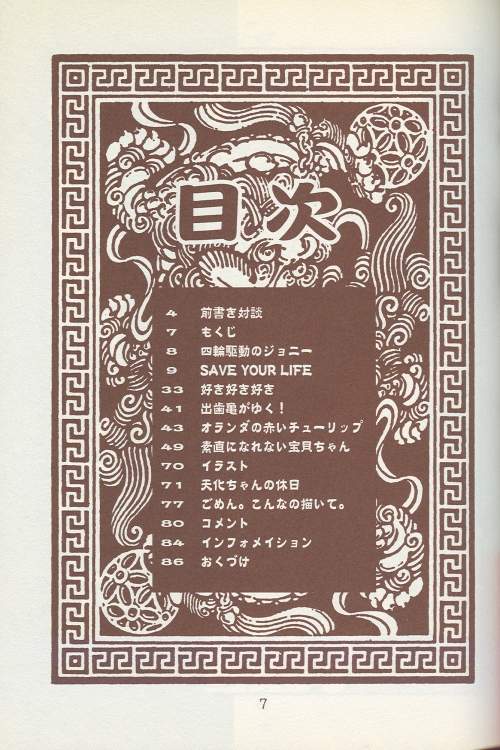 目次
4 前書き対談
7 もくじ
8 四輪駆動のジョニー
9 SAVE YOUR LIFE
33 好き好き好き
41 出歯亀がゆく!
43 オランダの赤いチューリップ
49 素直になれない宝貝ちゃん
70 イラスト
71 天化ちゃんの休日
77 ごめん。こんなの描いて。
80 コメント
84 インフォメイション
86 おくづけ
7